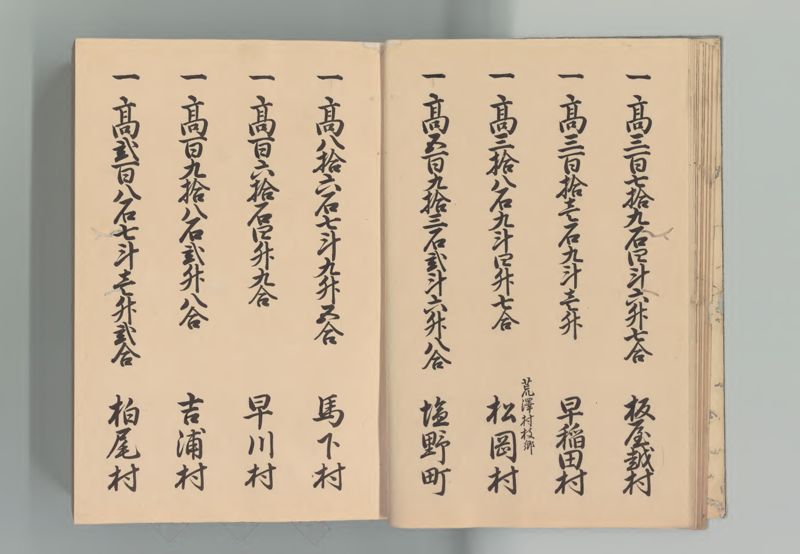 一高三百七拾九石四斗六升七合 板屋越村
一高三百拾壱石九斗壱升 早稲田村
荒澤村枝郷
一高三拾八石九斗四升七合 松岡村
一高五百九拾三石弐斗六升八合 塩野町
一高八拾六石七斗九升五合 馬下村
一高百六拾石四升九合 早川村
一高百九拾八石弐升八合 吉浦村
一高弐百八石七斗壱升弐合 柏尾村